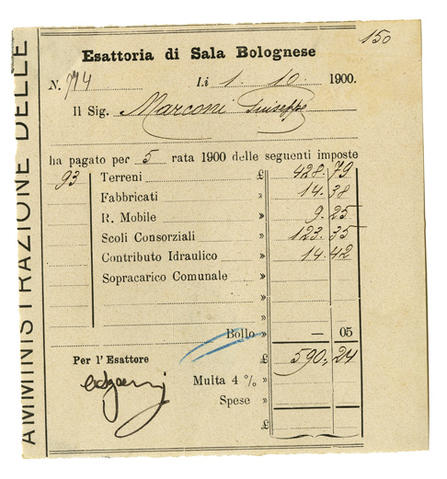 150
AMMINISTRAZIONE DELLE
Esattoria di Sala Bolognese
N. 774 Li 1. 10. 1900.
Il Sig. Marconi Giuseppe
ha pagato per 5 rata 1900 delle seguenti imposte
93 Terreni £ 428.79
Fabbricati » 14.38
R. Mobile » 9.25
Scoli Consorziali » 123.35
Contributo Idraulico » 14.42
Sopracarico Comunale »
Bollo » — 05
Per l'Esattore £ 590.24
Multa 4 % »
Spese »